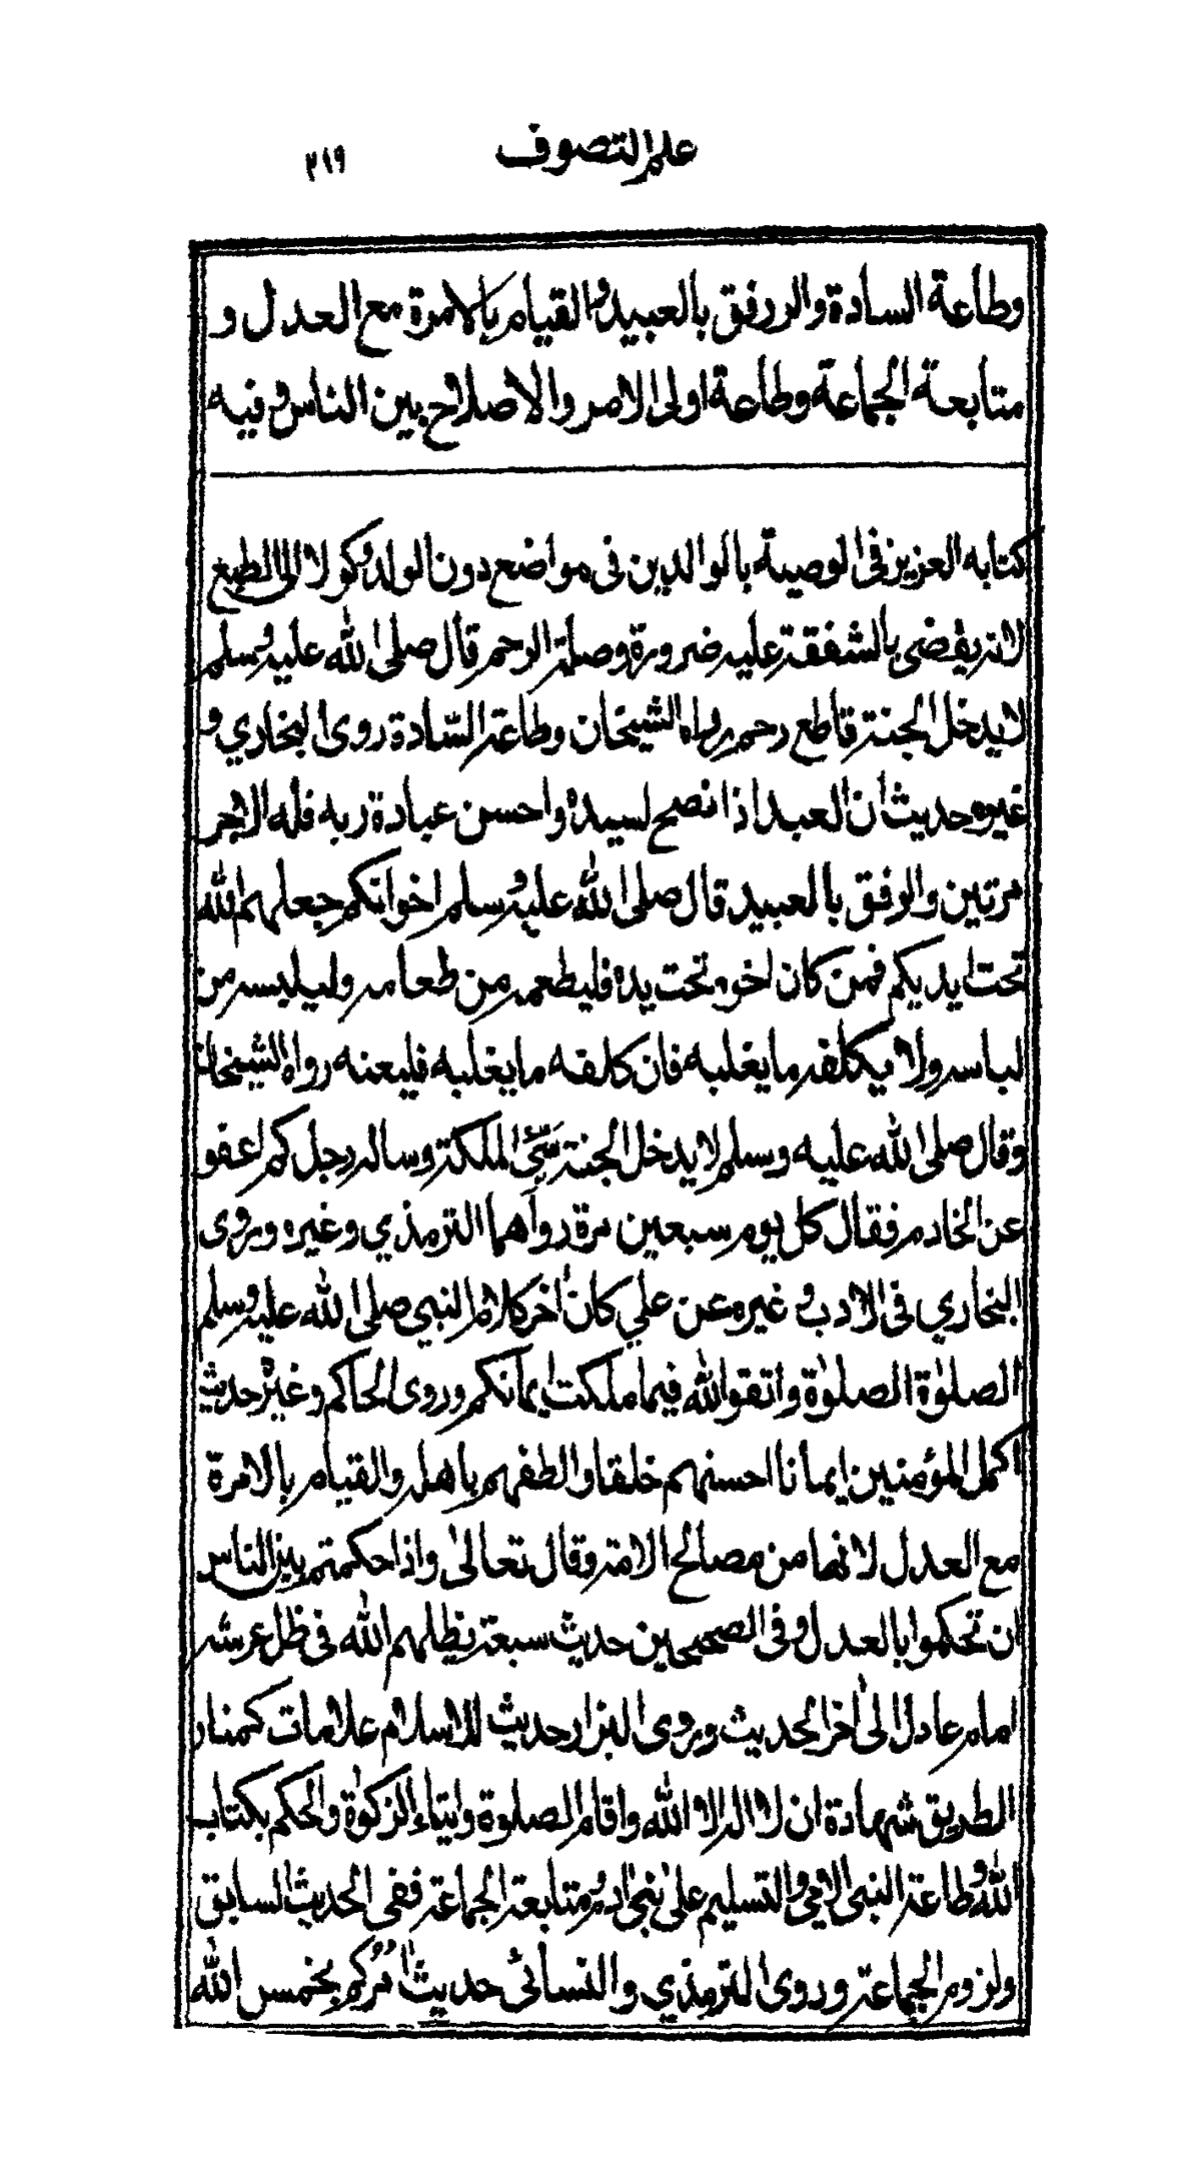 علم التصوف ٢١٩
وطاعة السادة والررفق بالعبيد والقيام بالامرة مع العدل و
متابعة الجماعة وطاعة اولى الامر والاصلاح بين الناس وفيه
كتابه العزيز فى الوصية بالوالدين فى مواضع دون الولد وكولا الى الطبع
لانه يقضى بالشفقة عليه ضرورة وصلة الرحم قال صلى الله عليه وسلم
لا يدخل الجنة قاطع رحم رواه الشيخان وطاعة السّادة روى البخاري و
غيره حديث ان العبد اذا نصح لسيده واحسن عبادة ربه فله الاجر
مرتين والرفق بالعبيد قال صلى الله عليه وسلم اخوانكم جعلهم الله
تحت ايديكم فمن كان اخوه تحت يده فليطعمه من طعامه وليلبسه من
لباسه ولا يكلفه ما يغلبه فان كلفه ما يغلبه فليعنه رواه الشيخان
وقال صلى الله عليه وسلم لا يدخل الجنة سَيّئ الملكة وساله رجل كم اعفو
عن الخادم فقال كل يوم سبعين مرة رواهما الترمذي وغيره وروى
البخاري فى الادب وغيره عن علي كان اٰخر كلام النبي صلى الله عليه وسلم
الصلوٰة الصلوٰة واتقو الله فيما ملكت ايمانكم وروى الحاكم وغيره حديث
اكمل المؤمنين ايمانا احسنهم خلقا والطفهم باهله والقيام بالامرة
مع العدل لانها من مصالح الامة وقال تعالىٰ واذا حكمتم بين الناس
ان تحكموا بالعدل وفى الصحيحين حديث سبعة يظلهم الله فى ظل عرشه
امام عادل الىٰ اٰخر الحديث وروى البزار حديث للاسلام علامات كمنار
الطريق شهادة ان لا اله الا الله واقام الصلوة وايتاء الزكوٰة والحكم بكتاب
الله وطاعة النبى الامى والتسليم علىٰ بنى اٰدم ومتابعة الجماعة ففى الحديث السابق
ولزوم الجماعة وروى الترمذي والنسائى حديث اٰمركم بخمس الله